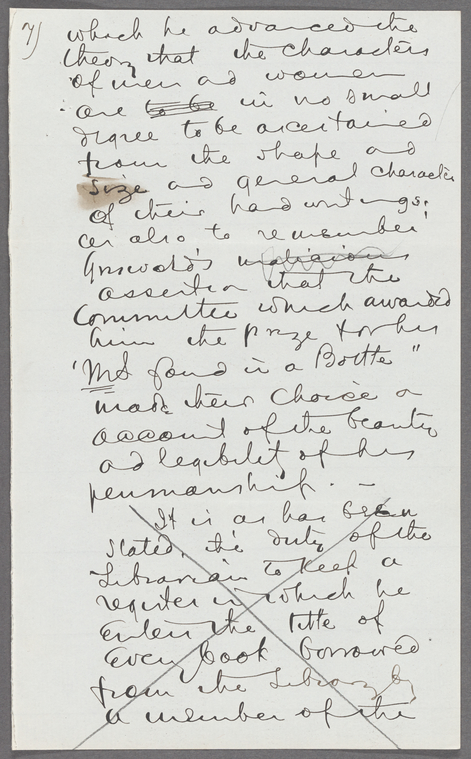 7)
which he advanced the
theory that the characters
of men ad women
are to be in no small
degree to be ascertained
from the shape and
size and general character
of their handwritings.
also to remember
Griswold's malicious
assertion that the
Committee which awarded
him the prize for his
"MS found in a Bottle"
made their choice on
account of the beauty
ad legibility of his
penmanship. —
It is as has been
stated, the duty of the
Librarian to keep a
register in which he
enters the title of
every book borrowed
from the Library by
a member of the